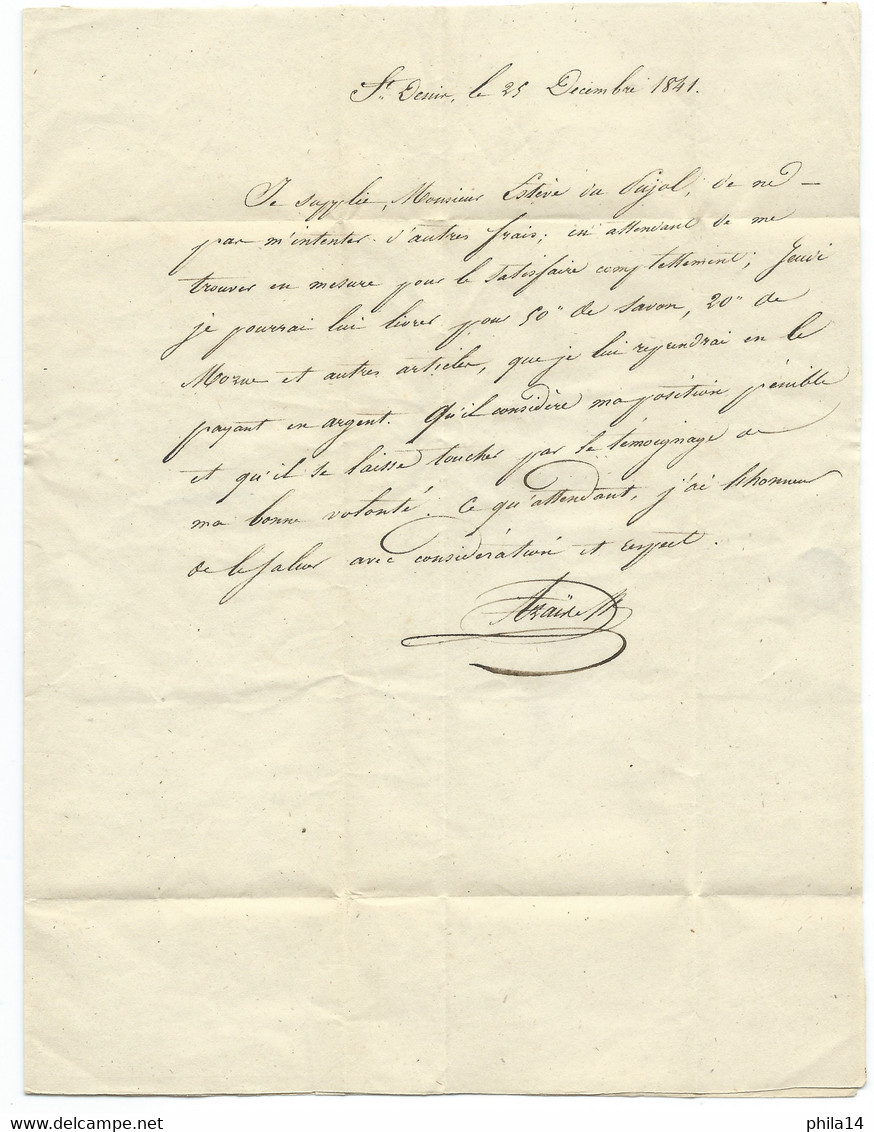 St. Denis, le 25 Décembre 1841.
Je supplie, Monsieur Estève du Pujol, de ne
pas m'intenter d'autres frais; en attendant de me
trouver en mesure pour le satisfaire complettement; Jeudi
je pourrai lui livrer pour 50" de savon, 20" de
Morue et autres articles, que je lui reprendrai en le
payant en argent. Qu'il considère ma position pénible
et qu'il se laisse toucher par le témoignage de
ma bonne volonté. Ce qu'attendant, j'ai l'honneur
de le saluer avec considération et respect.
delcampe.net
phila14